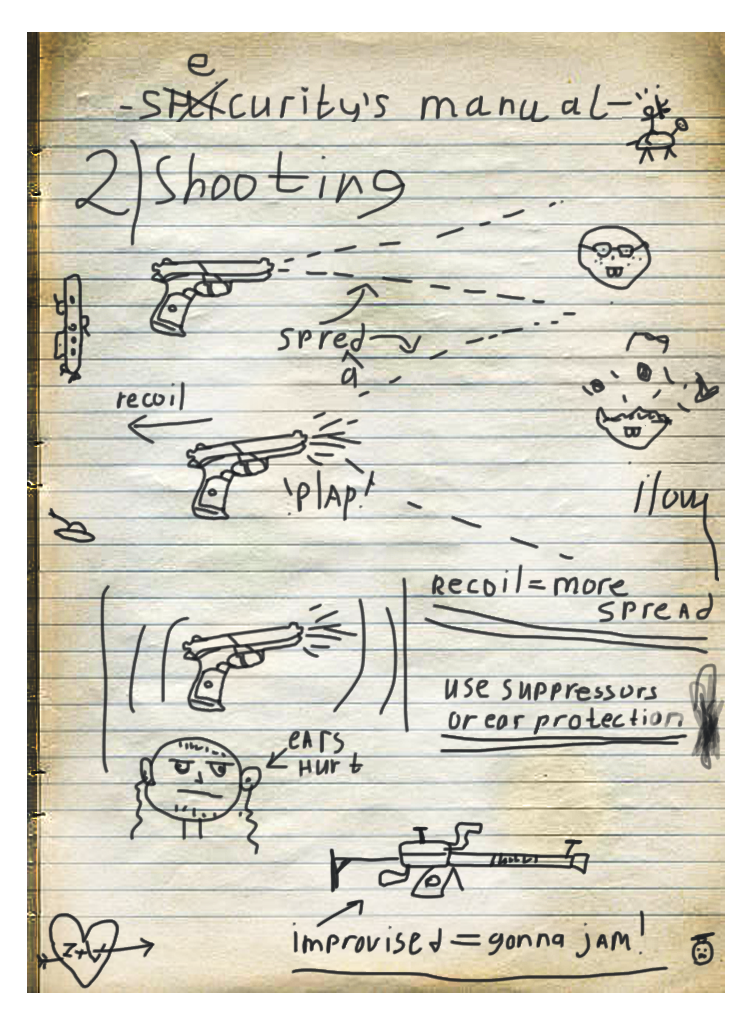 e
-SHICURITY's manual-
2) Shooting
spred
a
recoil
'PLAP!'
RECOIL = MORE
SPREAD
USE SUPPRESSORS
or ear protection
EARS
HURT
improvised = gonna JAM!